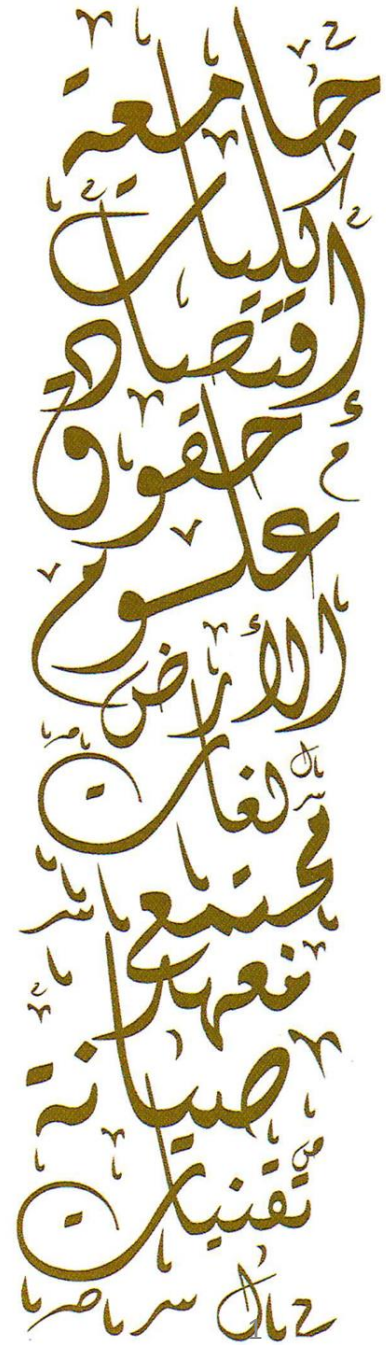 جامعة
كليات
إقتصاد
حقوق
علوم
الأرض
لغات
مجتمعي
معهد
صيانة
تقنيات
1